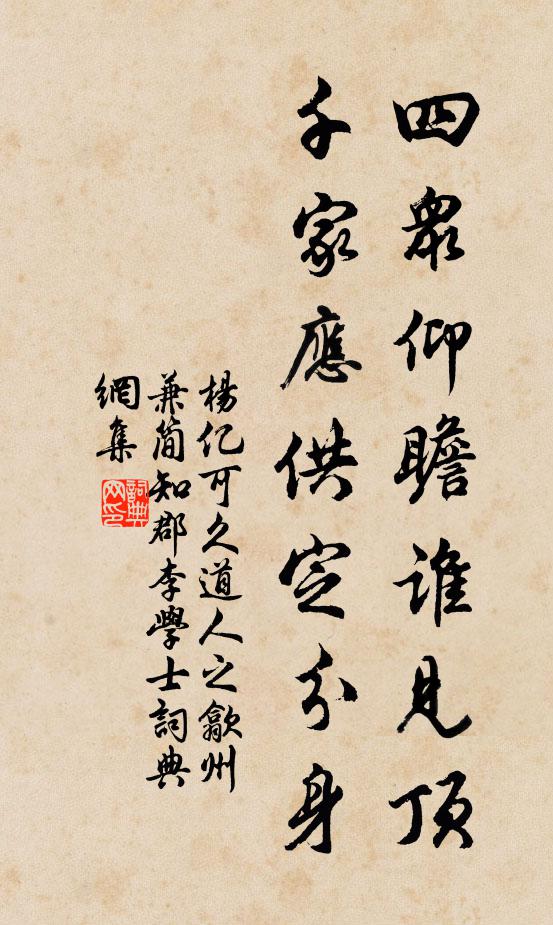 四眾仰瞻誰見頂
千家應供定分身
楊亿可久道人之歙州
兼简知郡李學士詞典
網集
詞典
网印